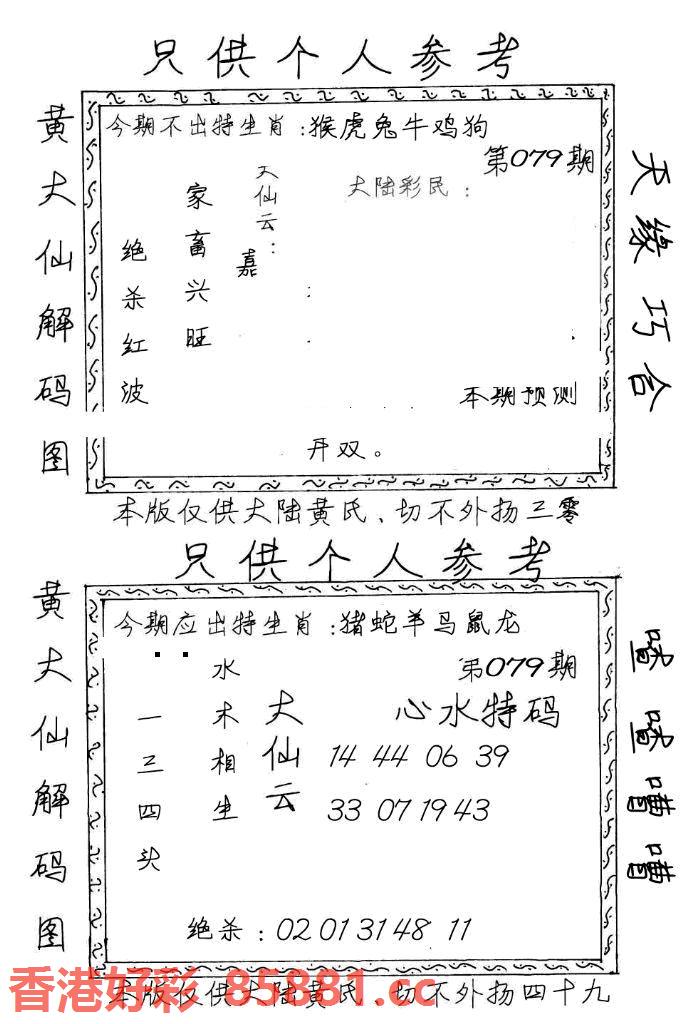 只供个人参考
黄大仙解码图
今期不出特生肖：猴虎兔牛鸡狗
第079期
大陆彩民：
大仙云：
嘉
家畜兴旺
绝杀红波
本期预测
开双。
天缘巧合
本版仅供大陆黄氏、切不外扬三零
只供个人参考
黄大仙解码图
今期应出特生肖：猪蛇羊马鼠龙
第079期
心水特码
大仙云
水木相生
一三四头
14 44 06 39
33 07 19 43
绝杀：02 01 31 48 11
喳喳嘈嘈
本版仅供大陆黄氏、切不外扬四十九
香港好彩 85881.cc